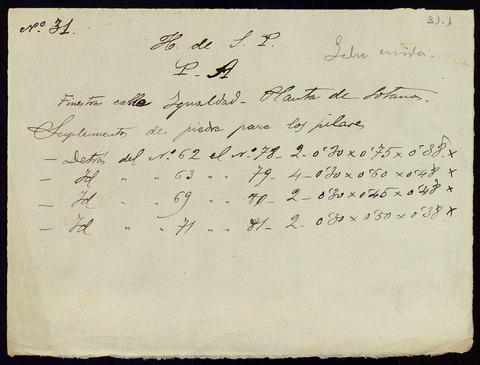 Nº 31.
31.1
H. de S. P.
P. A
Finestras calle Igualdad - Planta de Sotanos.
Suplemento de piedra para los pilares
- Detras del Nº 62 el Nº 78 - 2 - 0'80 x 0'75 x 0'38 x
- Id " " 63 " " 79 - 4 - 0'80 x 0'60 x 0'48 x
- Id " " 69 " " 80 - 2 - 0'80 x 0'45 x 0'48 x
- Id " " 71 " " 81 - 2 - 0'80 x 0'50 x 0'38 x